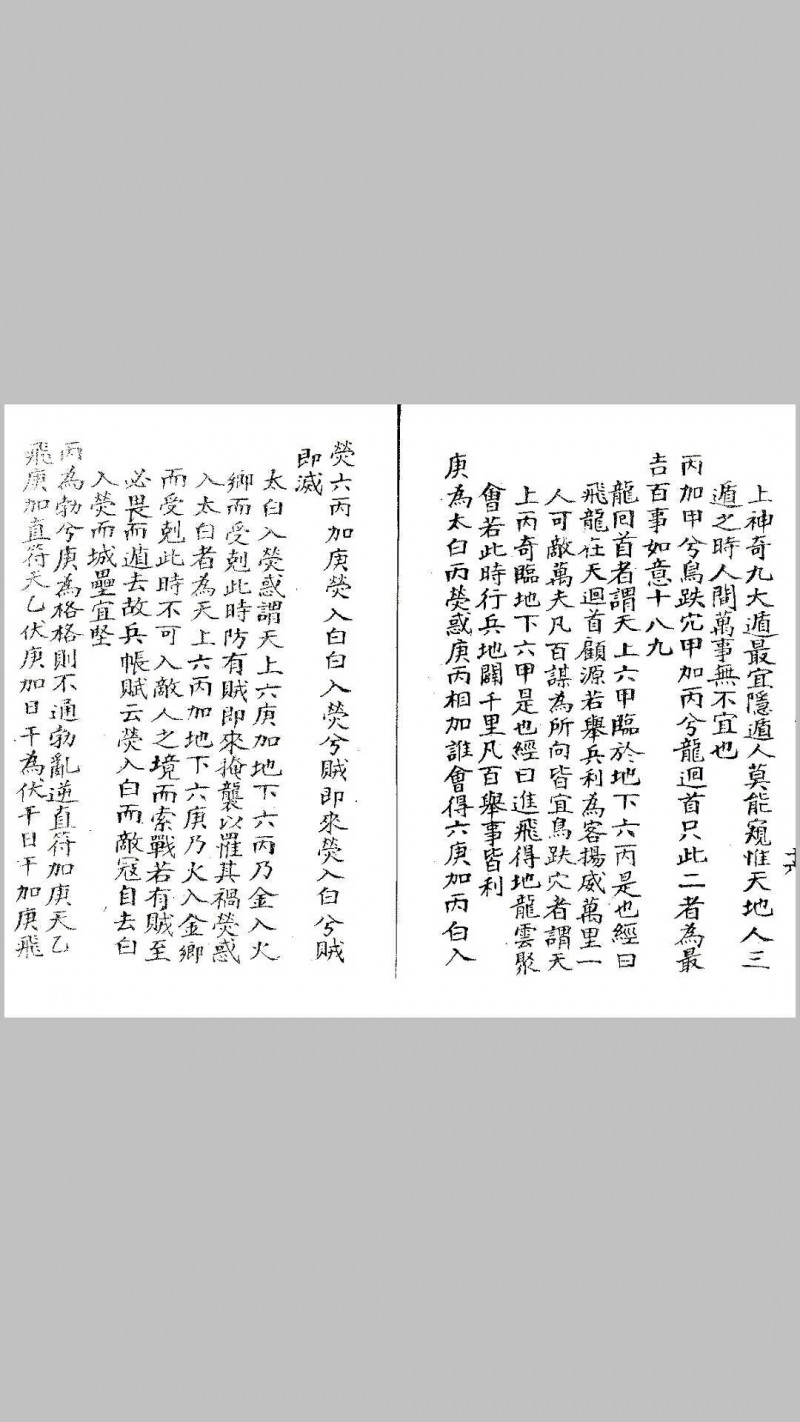 上神奇九大遁最宜隱遁人莫能窺惟天地人三
遁之時人間萬事無不宜也
丙加甲兮鳥跌穴甲加丙兮龍迴首只此二者為最
吉百事如意十八九
龍回首者謂天上六甲臨於地下六丙是也經曰
飛龍在天迴首顧源若舉兵利為客揚威萬里一
人可敵萬夫凡百謀為所向皆宜鳥跌穴者謂天
上丙奇臨地下六甲是也經曰進飛得地龍雲聚
會若此時行兵地闢千里凡百舉事皆利
庚為太白丙熒惑庚丙相加誰會得六庚加丙白入
熒六丙加庚熒入白白入熒兮賊即來熒入白兮賊
即滅
太白入熒惑謂天上六庚加地下六丙乃金入火
鄉而受剋此時防有賊即來掩襲以罹其禍熒惑
入太白者為天上六丙加地下六庚乃火入金鄉
而受剋此時不可入敵人之境而索戰若有賊至
必畏而遁去故兵帳賦云熒入白而敵冦自去白
入熒而城壘宜堅
丙為勃兮庚為格格則不通勃亂逆直符加庚天乙
飛庚加直符天乙伏庚加日干為伏干日干加庚飛